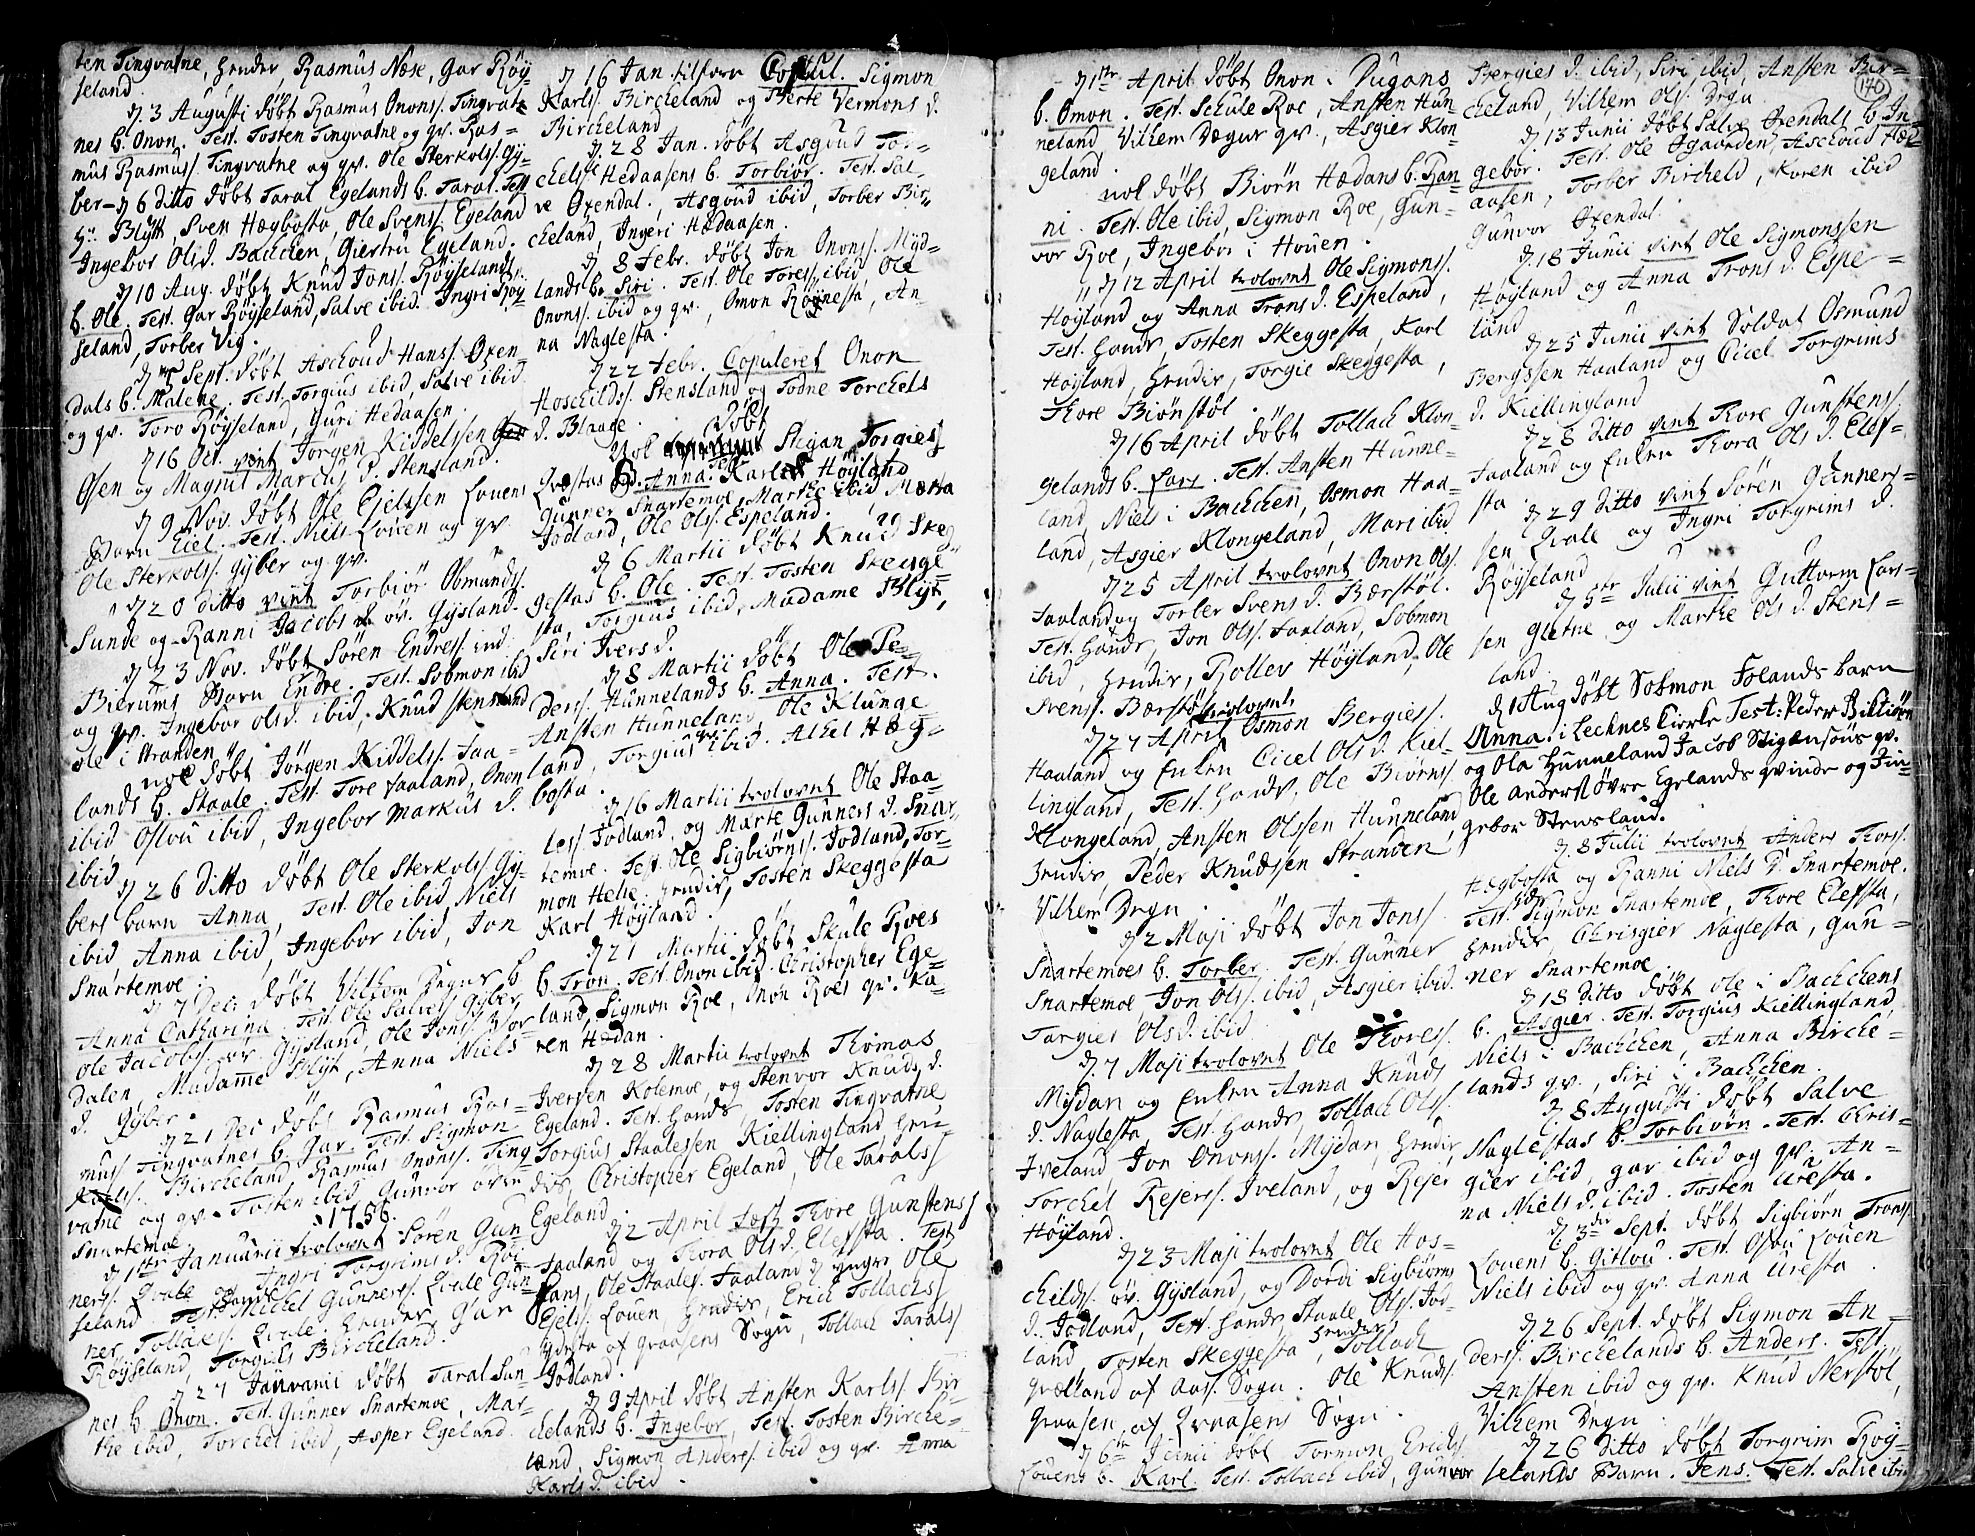 ten Tingvatne, hender, Rasmus Næse, Gar Röy-
seland.
d 3 Augusti döbt Rasmus Ononss. Tingvat-
nes b. Onon. Test. Tosten Tingvatne og qv. Ras-
mus Rasmuss. Tingvatne og qv. Ole Sterkolss. Gy-
ber - d 6 ditto döbt Taral Egelands b. Taral. Test
Hr Blytt, Sven Hægbosta, Ole Svenss. Egeland
Ingebor Olsd. Bachen, Giertru Egeland.
d 10 Aug. döbt Knud Jonss. Röyselands
b. Ole. Test. Gar Röyseland, Salve ibid. Ingri Röy-
seland, Torber Vig.
Sept. döbt Aschoud Hanss. Oxen-
dals b. Malene. Test. Torgius ibid, Salve ibid
og qv. Toro Röyseland, Guri Hedaasen.
d 16 Oct. vint Jörgen Kiddelssen
Osen og Magnil Marcus d. Stensland.
d 9 Nov. döbt Ole Ejelssen Louens
Barn Eiel. Test. Niels Louen og qv.
Ole Sterkolss. Gyber og qv.
d 20 ditto vint Torbiör Obmunds.
Sunde og Ranni Jacobs d. öv. Gysland.
d 23 Nov. döbt Sören Endress. ind.
Bierums Barn Endre. Test. Sobmon ibid
og qv. Ingebor olsd. ibid, Knud Stensland
ole i Stranden
nok döbt Jörgen Kiddelss. Faa-
lands b. Staale. Test. Tore Faaland, Onon
ibid Oslou ibid, Ingebor Markus d.
ibid
d 26 Ditto döbt Ole Sterkolss. Gy-
bers barn Anna, Test. Ole ibid, Niels
ibid Anna ibid, Ingebor ibid, Jon
Snartemoe.
d 7 Dec: döbt Vilhem Degns b.
Anna Catharina. Test. Ole Salves Gyber
Ole Jacobss. öv. Gysland, Ole Jonss.
Dalen, Madame Blyt, Anna Niels
d. Gyber.
d 21 Dec döbt Rasmus Ras-
muss Tingvatnes b. Gar. Test. Sigmon
Karlss. Bircheland Rasmus Ononss. Ting
vatne og qv. Tosten ibid, Gunvor
Snartemoe.
1756.
d 1ste Januarii trolovet Sören Gun
ners. Qvale og Ingri Torgrims d. Röi-
seland. Test. Michel Gunners. Qvale Gun-
ner Tollaks. Qvale, hender Gar
Röyseland, Torgius Bircheland.
d 27 Januarii döbt Taral Sun-
nes b. Onon. Test. Gunner Snartemoe, Mar-
the ibid, Torchel ibid, Asper Egeland.
d 16 Jan. tilforn Copul. Sigmon
Karlss. Bircheland og Berte Vermons d.
Bircheland
d. 28 Jan. döbt Asgoud Tor-
chelss. Hedaasens b. Torbiör. Test. Sal-
ve Oxendal. Asgoud ibid, Torber Bir-
cheland, Ingeri Hædaasen.
d 8 Febr. döbt Jon Ononss. Myd-
lands b. Siri. Test. Ole Toress. ibid Ole
Ononss. ibid og qv. Omon Röynesta, An-
na Naglesta.
d 22 Febr. Copuleret Onon
Hoschildss. Stensland og Todne Torchels
d. Blauge.
Döbt
Nok Stigan Torgiess
Qvæstas b. Anna. Test. Karl Höyland
Gunner Snartemoe, Marthe ibid Marta
Jodland, Ole Olss. Espeland.
d 6 Martii döbt Knud Skeg
gestas b. Ole. Test. Tosten Skegge
sta, Torgius ibid, Madame Blyt,
Siri Ivers d.
d 8 Martii döbt Ole Pe-
derss. Hunnelands b. Anna. Test.
Ansten Hunneland, Ole Klunge
land, Torgius qv. ibid. Athel Hæg-
bosta.
d 16 Martii trolovet Ole Staa
less Jodland, og Marte Gunners d. Snar-
temoe. Test. Ole Sigbiörns. Jodland, Tor-
mon Helle. hender, Tosten Skeggesta
Karl Höyland.
d 21 Martii döbt Skule Roes
b. Tron. Test. Onon ibid. Christopher Ege-
land, Sigmon Roe, Onon Roes qv. Ka-
ren Hædan.
d 28 Martii trolovet Thomas
Iversen Kolemoe, og Stenvor Knuds d.
Egeland. Test. hands, Tosten Tingvatne,
Torgius Staalessen Kiellingland hen-
des, Christopher Egeland, Ole Taralss
Egeland.
d 2 April Fæst Thore Gunstens
Faaland og Thora Ols d. Elefsta. Test
hans, Ole Staales. Faaland d yngre Ole
Ejels. Louen, hendes, Erich Tollachss
Ydesta af Qvaasens Sogn, Tollach Taralss
Jodland.
d 9 April döbt Ansten Karlss. Bir-
chelands b. Ingebor, Test. Tosten Birche-
land, Sigmon Anderss. ibid og qv. Anna
Karls d. ibid
d 1ste April döbt Onon. Dugans
b. Omon. Test. Schule Roe, Ansten Hun-
neland Vilhem Degns qv., Asgier Klon-
geland.
nok döbt Biörn Hædans b. Ran-
ni. Test. Ole ibid, Sigmon Roe, Gun-
vor Roe, Ingebor i Houen.
d 12 April trolovet Ole Sigmonss.
Höyland og Anna Trons d. Espeland,
Test. hands, Tosten Skeggesta, Karl
Höyland, hendes, Torgie Skeggesta,
Thore Biörnstöl.
d 16 April döbt Tollach Klon-
gelands b. Lars. Test. Ansten Hunne-
land, Niels i Bachen, Osmon Haa-
land, Asgier Klongeland, Mari ibid
d 25 April trolovet Onon Olss.
Faaland og Torber Svens d. Bærstöl.
Test. hands, Jon Olss. Faaland, Sobmon
ibid, hendes, Rollev Höyland, Ole
Svens. Bærstöl
trolovet
d 27 April Osmon Bergiess.
Haaland og Enken Cicel Ols d. Kiel-
lingland, Test. hands, Ole Biörns.
Klongeland, Ansten Olssen Hunneland
hendes, Peder Knudsen Stranden
Vilhem Degn.
d 2 Maji döbt Jon Jonss.
Snartemoes b. Torber. Test. Gunner
Snartemoe, Jon Olss. ibid, Asgier ibid.
Torgier Ols d. ibid
d. 7 Maji trolovet Ole Thoress.
Mydan og Enken Anna Knuds
d. Naglesta, Test. hands, Tollach Olss.
Iveland, Jon Ononss. Mydan, hendes
Torchel Rejerss. Iveland, og Rejer
Höyland.
d 23 Maji trolovet Ole Hos-
childs. öv. Gysland, og Dordi Sigbiörns
d. Jodland, Test. hands Staale Olss. Jod-
land, Tosten Skeggesta, hendes Tollach
Qvælland af Aas. Sogn. Ole Knuds.
Qvaasen af Qvaasens Sogn.
d 6te Junii döbt Tormon Erichs
Louens b. Karl. Test. Tollach ibid, Gunvor
Bergies d. ibid, Siri ibid, Ansten Bir-
cheland, Vilhem Ols. Degn
170
d 13 Junii döbt Salve Oxendals b. In-
gebor. Test. Ole Ogaarden, Aschoud Hæd-
aasen, Torber Bircheld, Karen ibid
Gunvor Oxendal.
d. 18 Junii vint Ole Sigmonssen
Höyland og Anna Trons d. Espe-
land
d 25 Junii vint Soldat Osmund
Bergssen Haaland og Cicel Torgrims
d. Kiellingland
d 28 ditto vint Thore Gunstens.
Faaland og Enken Thora Ols d. Elef-
sta.
d 29 ditto vint Sören Gunners-
sen Qvale og Ingri Torgrims d.
Röyseland
d 5te Julii vint Guttorm Lars-
sen Gletne og Marthe Ols d. Stens-
land.
d 1 Aug döbt Sobmon Folands barn
Anna. i Lechnes Kierke Test: Peder Birkiön
og Ola Hunneland Jacob Stigansöns qv.
Ole Anders Övre Egelands qvinde og In-
gebor Stensland.
d. 8 Julii trolovet Anders Thorss.
Hægbosta og Ranni Niels d. Snartemoe.
Test. Sigmon Snartemoe, Thore Elefsta,
hendes Chrisgier Naglesta, Gun-
ner Snartemoe.
d 18 ditto döbt ole i Bachens
b. Asgier. Test. Torgius Kiellingland,
Niels i Bachen, Anna Birche-
lands qv., Siri i Bachen.
d. 8 Augusti döbt Salve
Naglestas b. Torbiörn. Test. Chris-
gier ibid, gar ibid og qv. An-
na Niels d. ibid. Tosten Uresta.
d 3die Sept. döbt Sigbiörn Tronss.
Louens b. Gitlou. Test. Osou Louen
Niels ibid og qv. Anna Uresta.
d 26 Sept. döbt Sigmon An-
derss. Birchelands b. Anders. Test.
Ansten ibid og qv. Knud Nerstöl,
Vilhem Degn
d 26 ditto döbt Torgrim Röy-
selands Barn. Jens. Test. Salve ibid